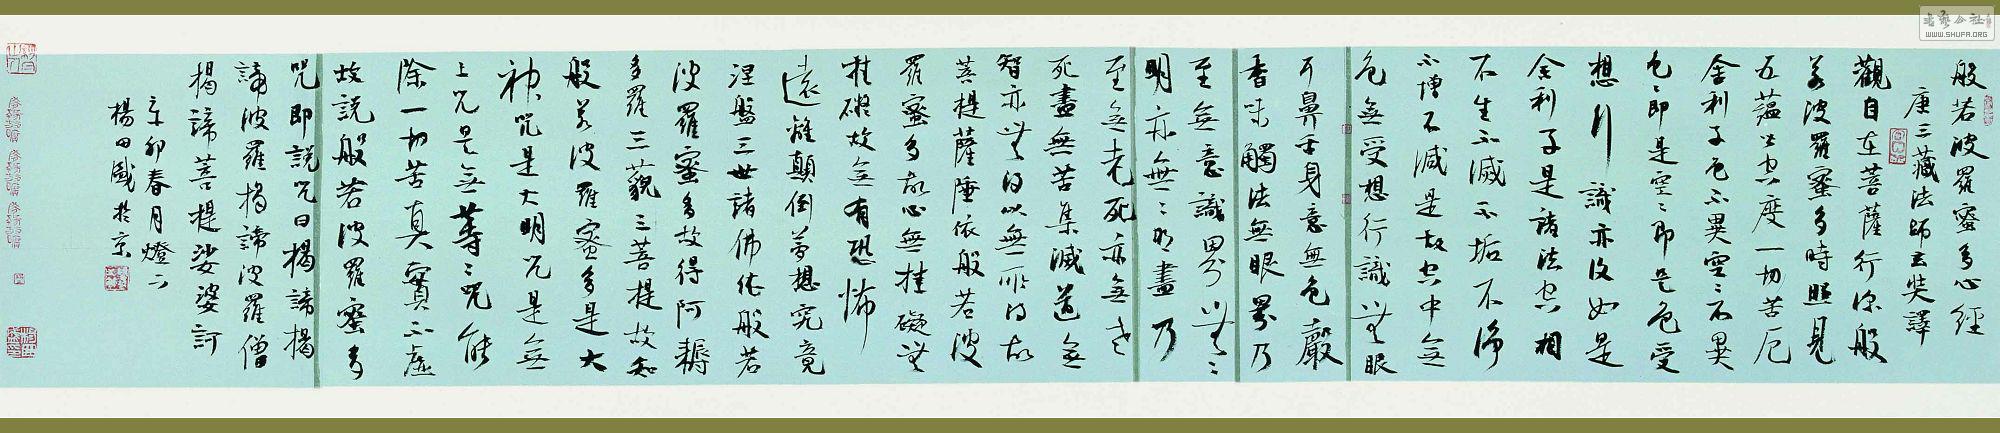 般若波羅蜜多心經
唐三藏法師玄奘譯
觀自在菩薩行深般
若波羅蜜多時照見
五蘊皆空度一切苦厄
舍利子色不異空〻不異
色〻即是空〻即是色受
想行識亦復如是
舍利子是諸法空相
不生不滅不垢不淨
不增不減是故空中無
色無受想行識無眼
耳鼻舌身意無色聲
香味觸法無眼界乃
至無意識界無〻
明亦無〻明盡乃
至無老死亦無老
死盡無苦集滅道無
智亦無得以無所得故
菩提薩埵依般若波
羅蜜多故心無挂礙無
挂礙故無有恐怖
遠離顛倒夢想究竟
涅盤三世諸佛依般若
波羅蜜多故得阿耨
多羅三藐三菩提故知
般若波羅蜜多是大
神咒是大明咒是無
上咒是無等〻咒能
除一切苦真實不虛
故說般若波羅蜜多
咒即說咒曰揭諦揭
諦波羅揭諦波羅僧
揭諦菩提娑婆訶
辛卯春月燈下
楊田盛於京
WWW.SHUFA.ORG